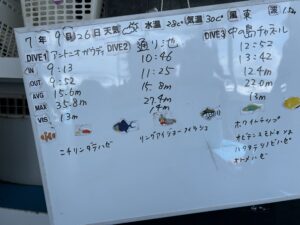 7年9月26日 天気 水温 28℃ 気温 30℃ 風 東 波 1.5m
DIVE1 アントニオガウディ DIVE2 通り池 DIVE3 中の島チャネル
IN 9:13 10:46 12:52
OUT 9:52 11:25 13:42
AVG 15.6m 15.8m 12.4m
MAX 35.8m 27.4m 22.0m
VIS 13m 14m 13m
ニチリンダテハゼ リングアイジョーフィッシュ ホワイトチップ
ハタタテシノビハゼ
オトメハゼ